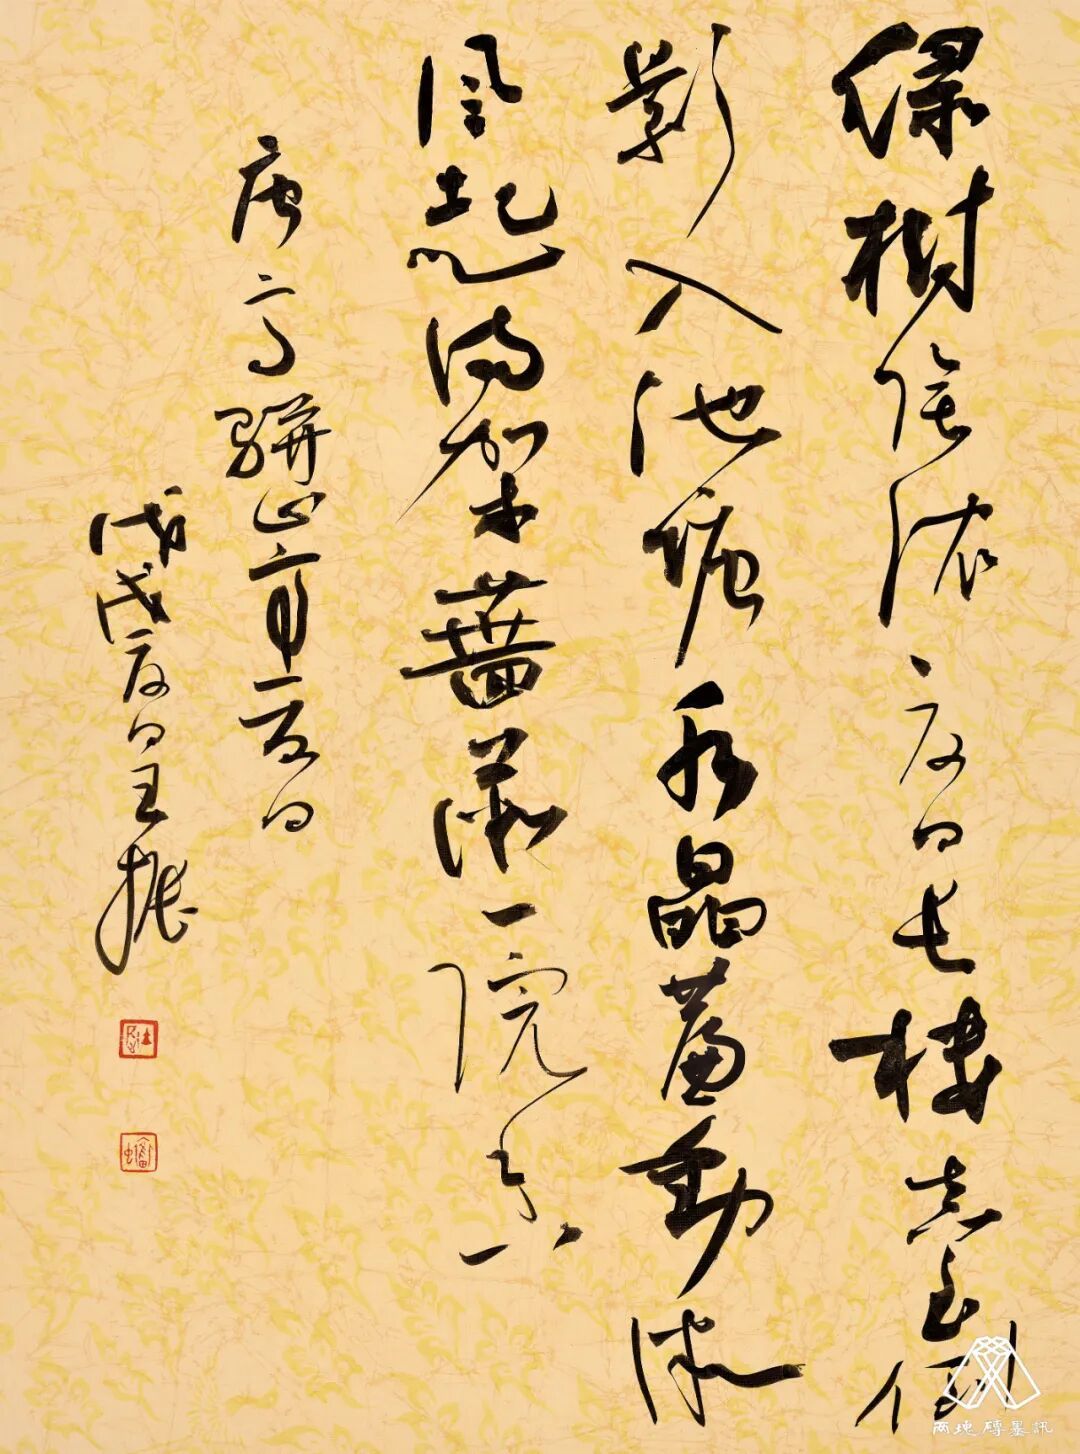 綠樹陰濃夏日長樓臺倒
影入池塘水晶簾動微
風起滿架薔薇一院香
唐高駢山亭夏日
戊戌夏日王振
两地磚墨訊